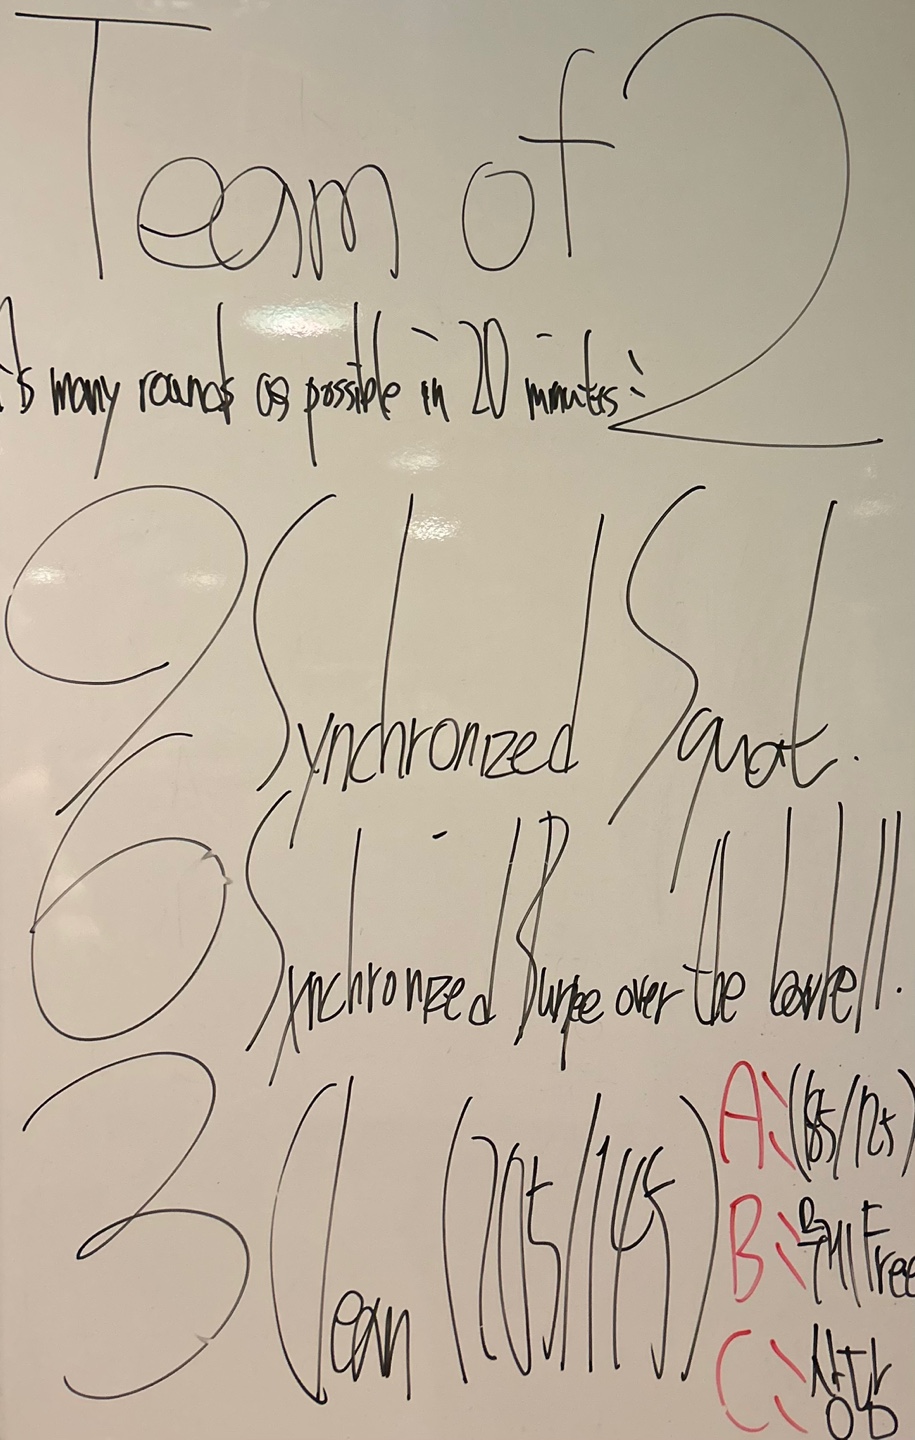 Team of 2
As many rounds as possible in 20 minutes:
9 Synchronized Squat.
6 Synchronized Burpee over the barbell.
3 Clean (205/145)
A: (185/125)
B: Free
C: